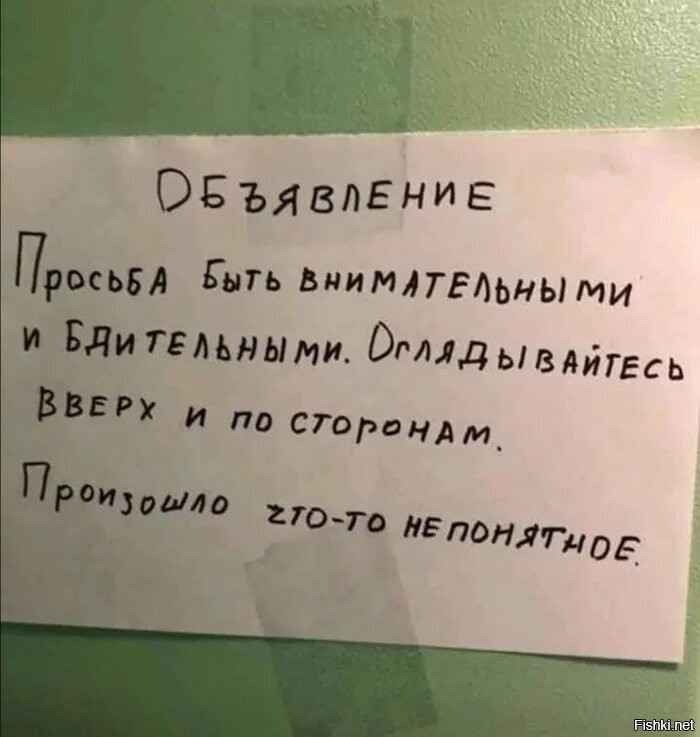 ОБЪЯВЛЕНИЕ
ПРОСЬБА БЫТЬ ВНИМАТЕЛЬНЫМИ
И БДИТЕЛЬНЫМИ. ОГЛЯДЫВАЙТЕСЬ
ВВЕРХ И ПО СТОРОНАМ.
ПРОИЗОШЛО ЧТО-ТО НЕПОНЯТНОЕ.
Fishki.net